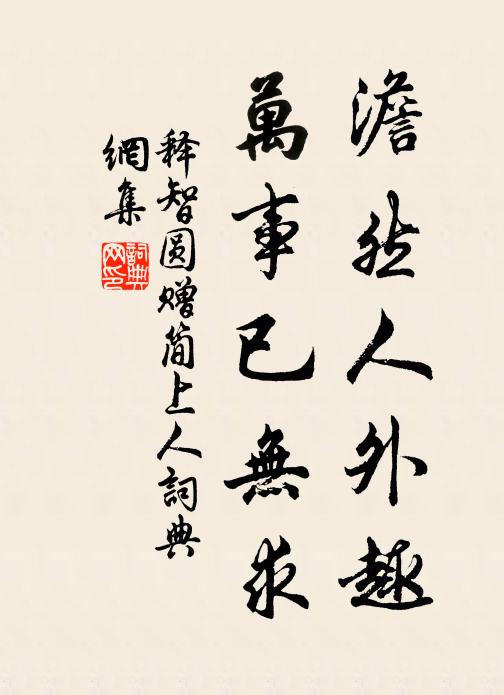 澹然人外趣
萬事已無求
释智圆赠简上人詞典
網集
詞典
网印